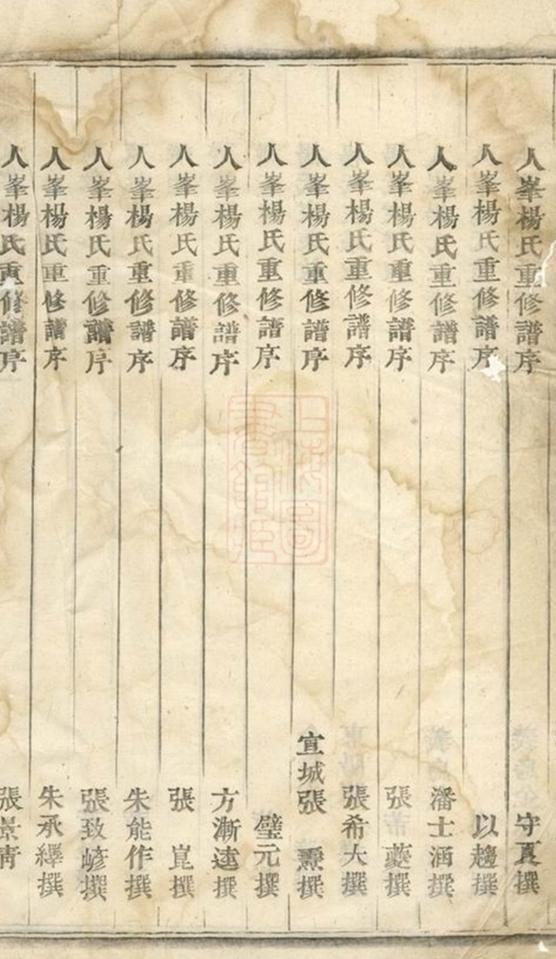 人峯楊氏重修譜序 守夏撰
人峯楊氏重修譜序 以趨撰
人峯楊氏重修譜序 潘士涵撰
人峯楊氏重修譜序 張 撰
人峯楊氏重修譜序 張希大撰
人峯楊氏重修譜序 宣城張 撰
人峯楊氏重修譜序 璧元撰
人峯楊氏重修譜序 方漸逵撰
人峯楊氏重修譜序 張 崑撰
人峯楊氏重修譜序 朱能作撰
人峯楊氏重修譜序 張致嵃撰
人峯楊氏重修譜序 朱承繹撰
人峯楊氏重修譜序 張景青